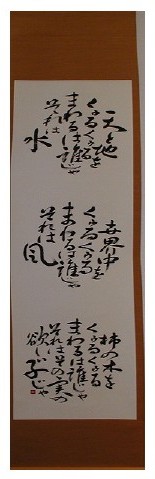 天と地を
くるくる
まわるは誰じゃ
それは
水
世界中を
くるくる
まわるは誰じゃ
それは
風
柿の木を
くるくる
まわるは誰じゃ
それはその実の
欲しい子じゃ